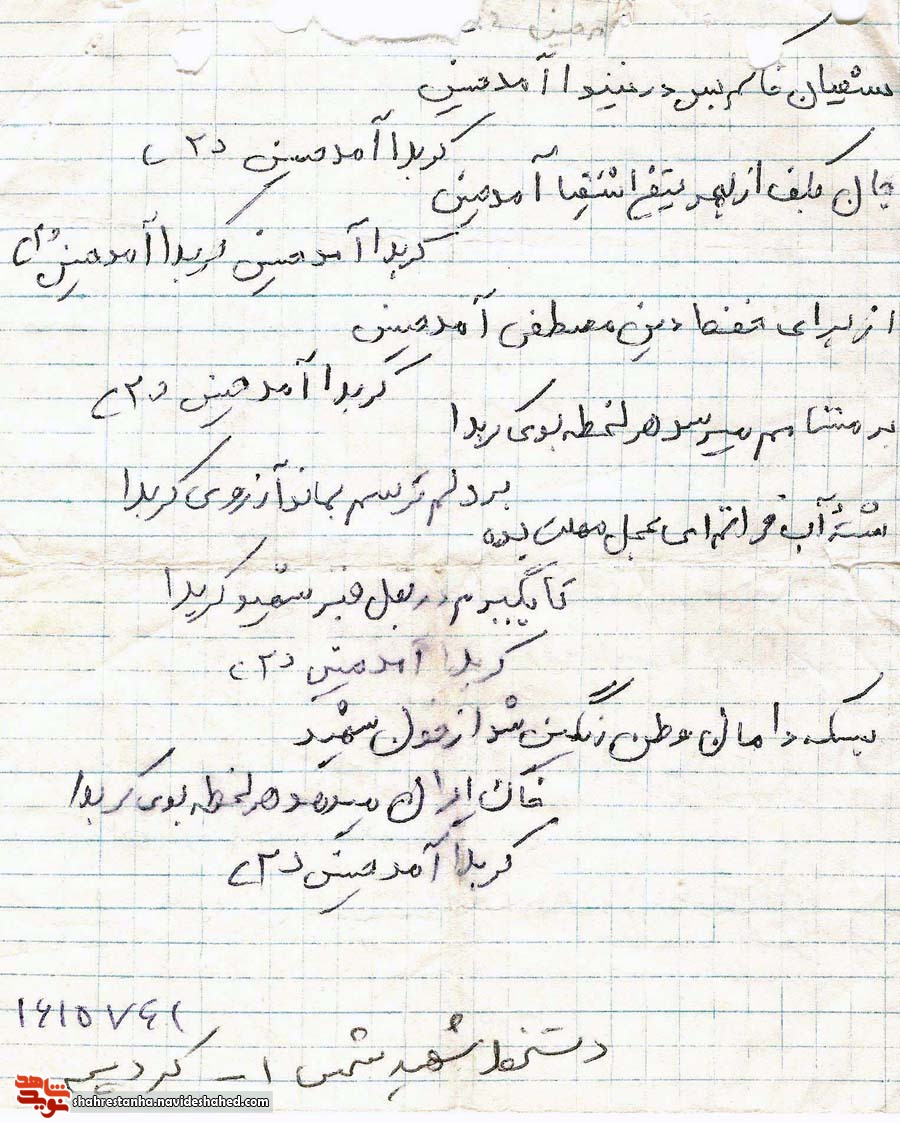 حسین
شعیان خاکم بسر در نینوا آمد حسین
کربلا آمد حسین (۲)
جان بکف از بهر تیغ اشقیا آمد حسین
کربلا آمد حسین کربلا آمد حسین (۲)
از برای حفظ دین مصطفی آمد حسین
کربلا آمد حسین (۲)
بر مشامم میرسد هر لحظه بوی کربلا
بر دلم ترسم بماند آرزوی کربلا
تشنۀ آب فراتم ای عجل مهلت بده
تا بگیرم در بغل قبر شهید کربلا
کربلا آمد حسین (۲)
بسکه دامان وطن رنگین شد از خون شهید
خاک ایران میدهد هر لحظه بوی کربلا
کربلا آمد حسین (۲)
دستخط شهید شمس ا...
شاهد نوید
shahrestanha.navideshahed.com